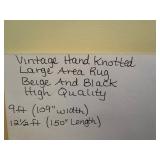 Vintage Hand Knotted
Large Area Rug
Beige And Black
High Quality
9ft (109" width)
12½ft (150" Length)